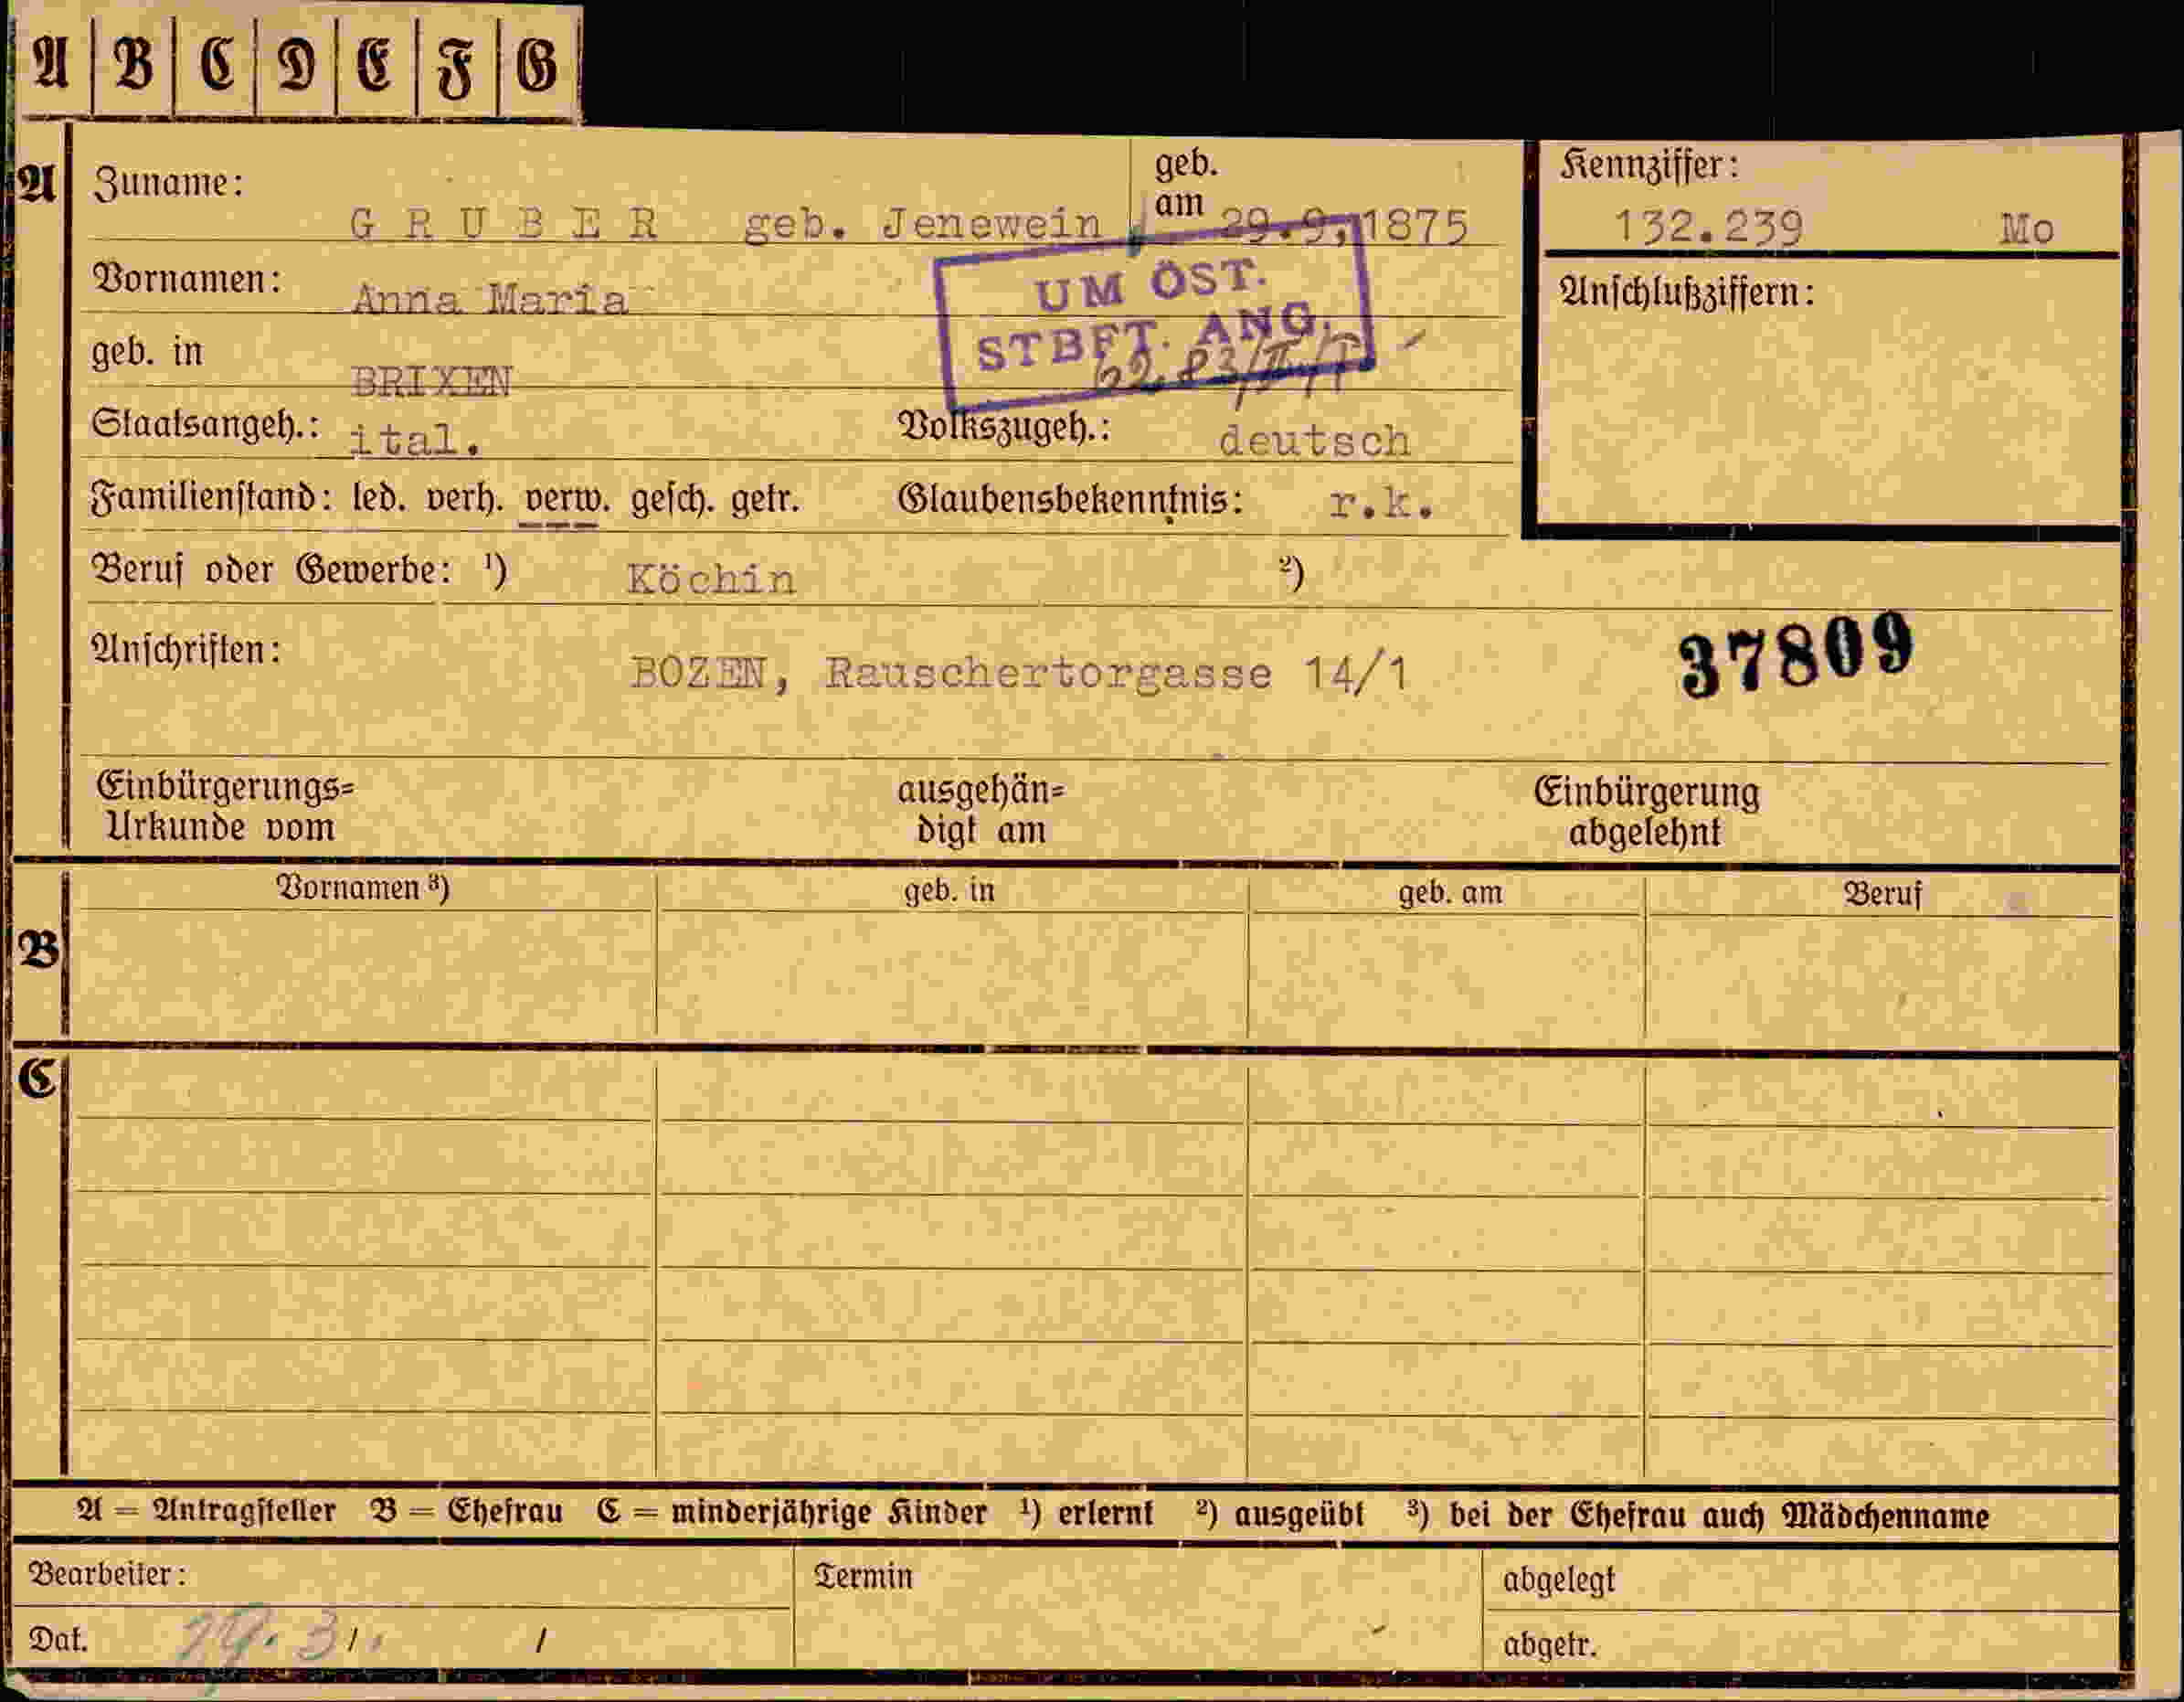 A B C D E F G
A Zuname: GRUBER geb. Jenewein geb. am 29.9.1875 Kennziffer: 132.239 Mo
Vornamen: Anna Maria Anschlußziffern:
UM ÖST.
STBFT. ANG.
geb. in BRIXEN
Staatsangeh.: ital. Volkszugeh.: deutsch
Familienstand: led. verh. verw. gesch. getr. Glaubensbekenntnis: r.k.
Beruf oder Gewerbe: ¹) Köchin ²)
Anschriften: BOZEN, Rauschertorgasse 14/1 37809
Einbürgerungs= ausgehän= Einbürgerung
Urkunde vom digt am abgelehnt
Vornamen ³) geb. in geb. am Beruf
B
C
A = Antragsteller B = Ehefrau C = minderjährige Kinder ¹) erlernt ²) ausgeübt ³) bei der Ehefrau auch Mädchenname
Bearbeiter: Termin abgelegt
Dat. abgetr.